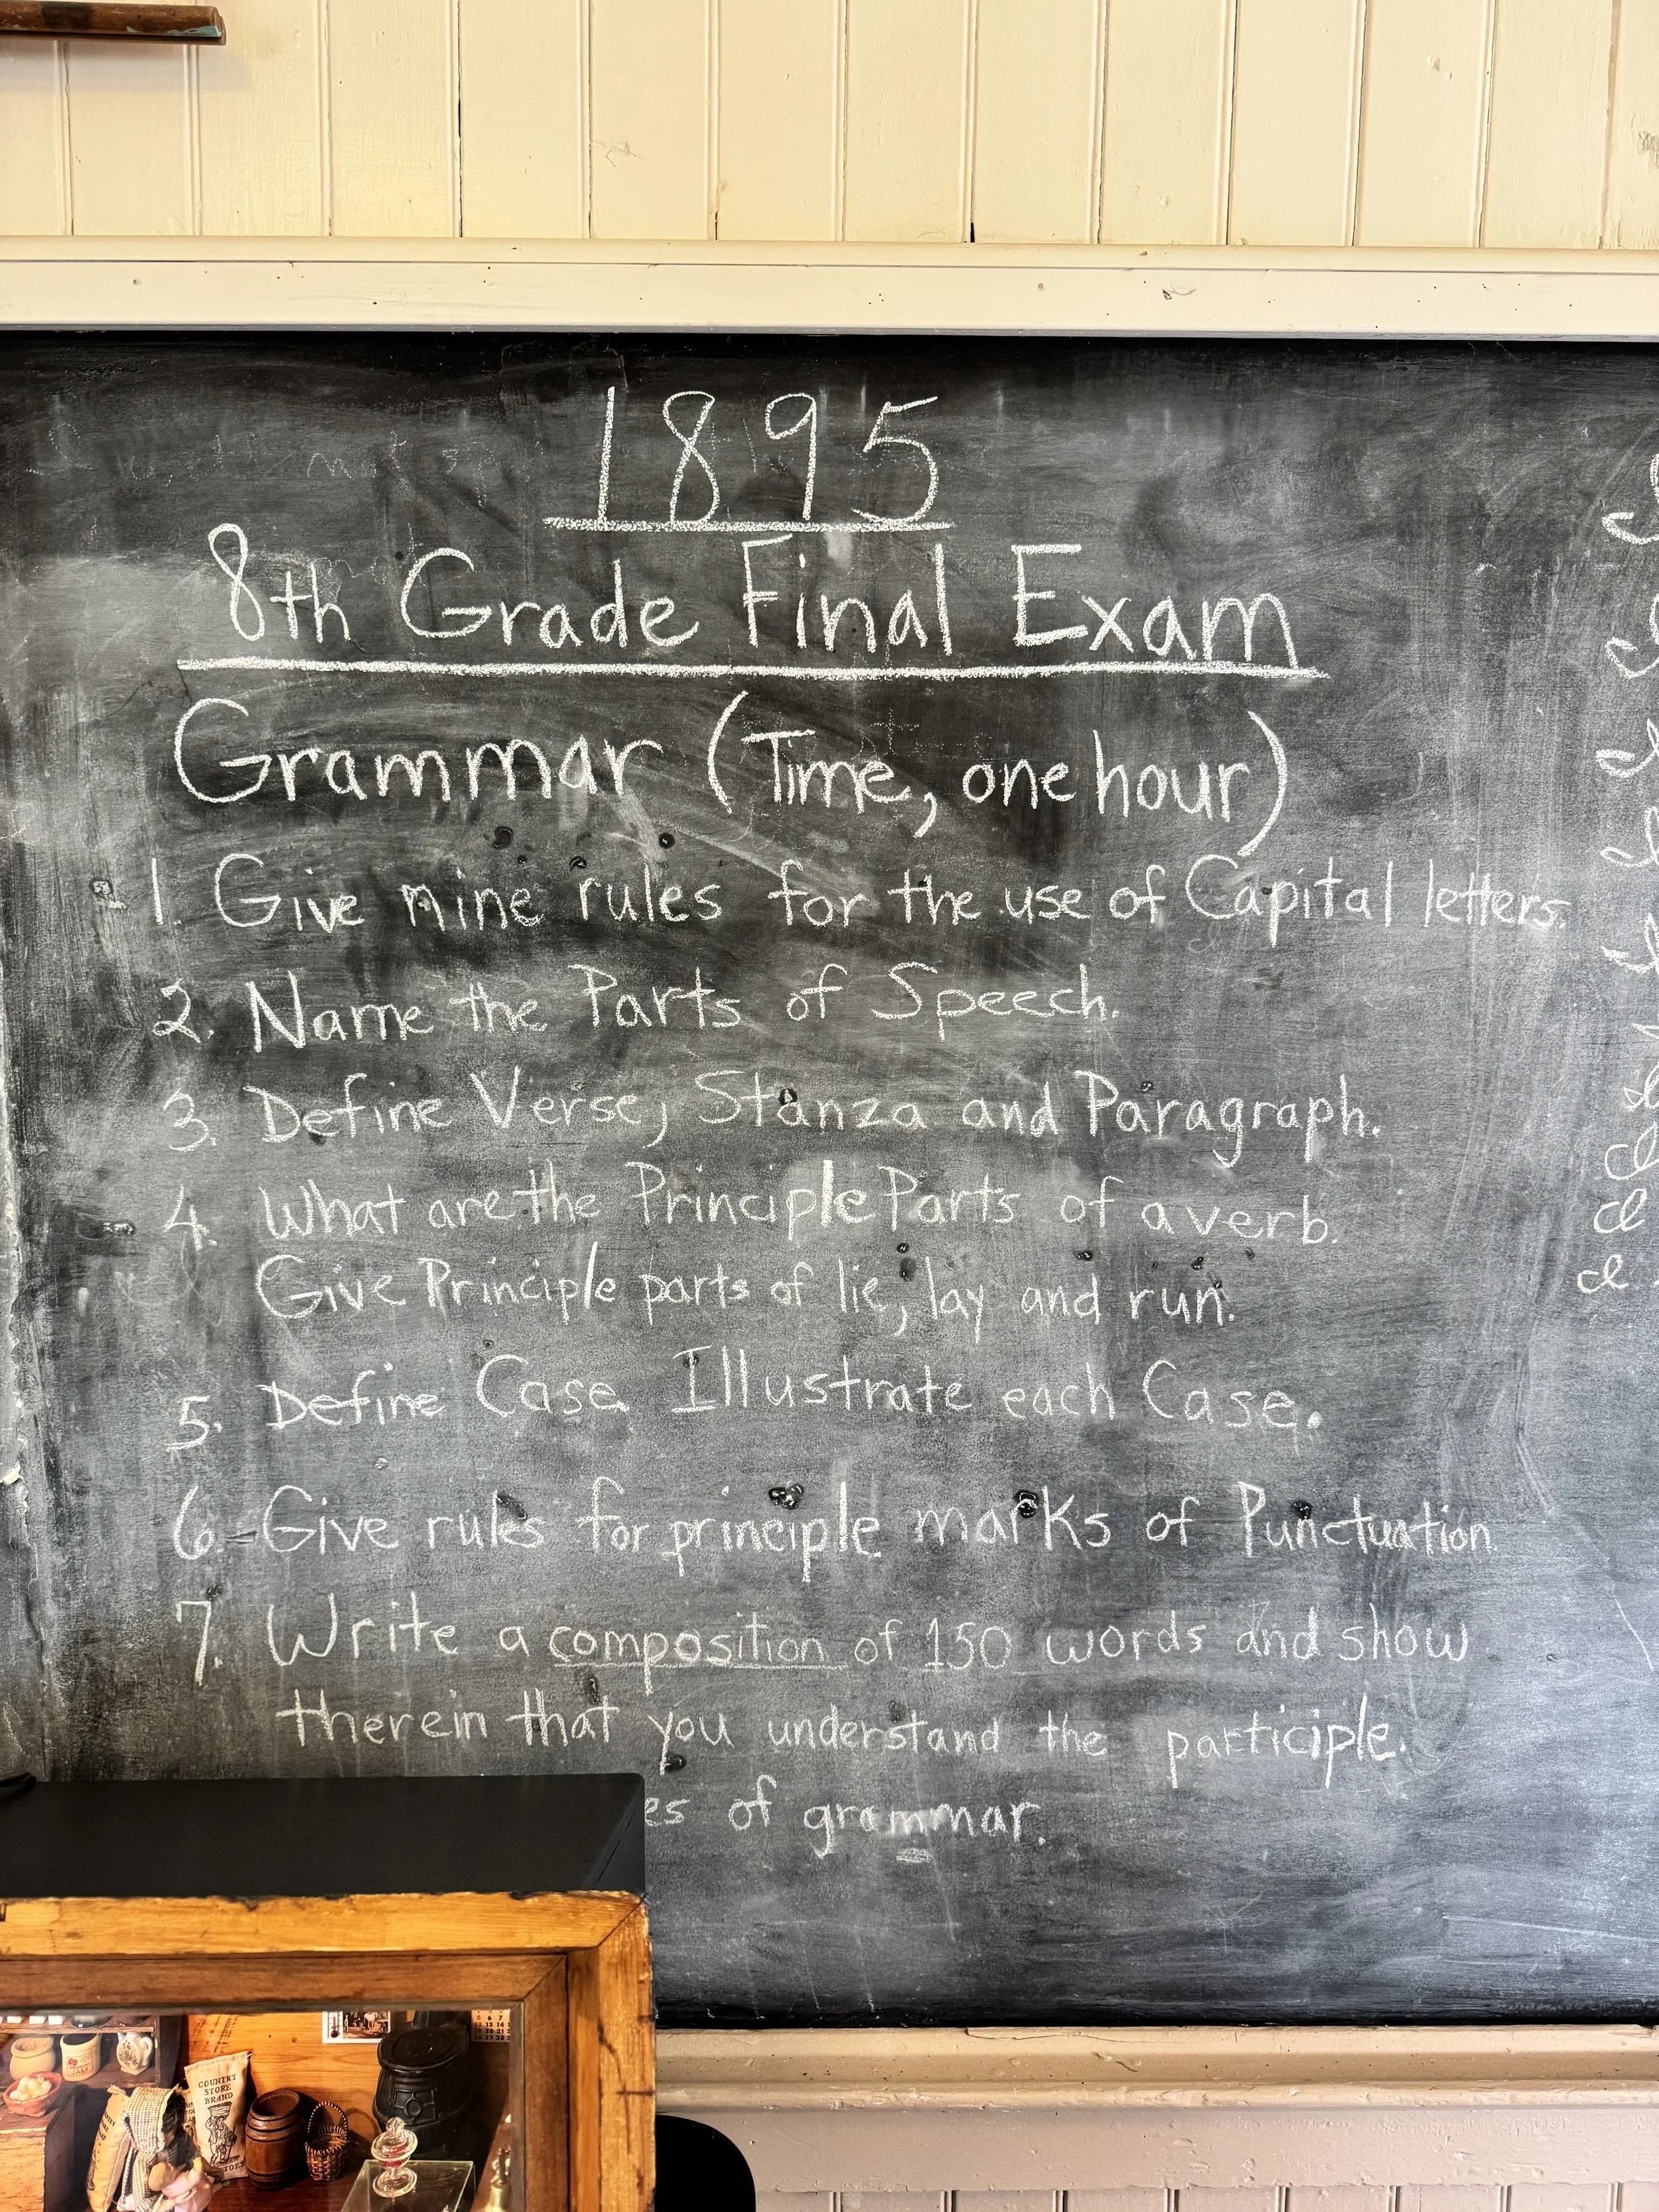 1895
8th Grade Final Exam
Grammar (Time, one hour)
1. Give nine rules for the use of Capital letters.
2. Name the Parts of Speech.
3. Define Verse, Stanza and Paragraph.
4. What are the Principle Parts of a verb.
Give Principle parts of lie, lay and run.
5. Define Case. Illustrate each Case.
6. Give rules for principle marks of Punctuation.
7. Write a composition of 150 words and show
therein that you understand the participle.
es of grammar.
COUNTRY
STORE
BRAND